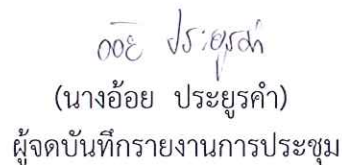 อ้อย ประยูรคำ
(นางอ้อย ประยูรคำ)
ผู้จดบันทึกรายงานการประชุม